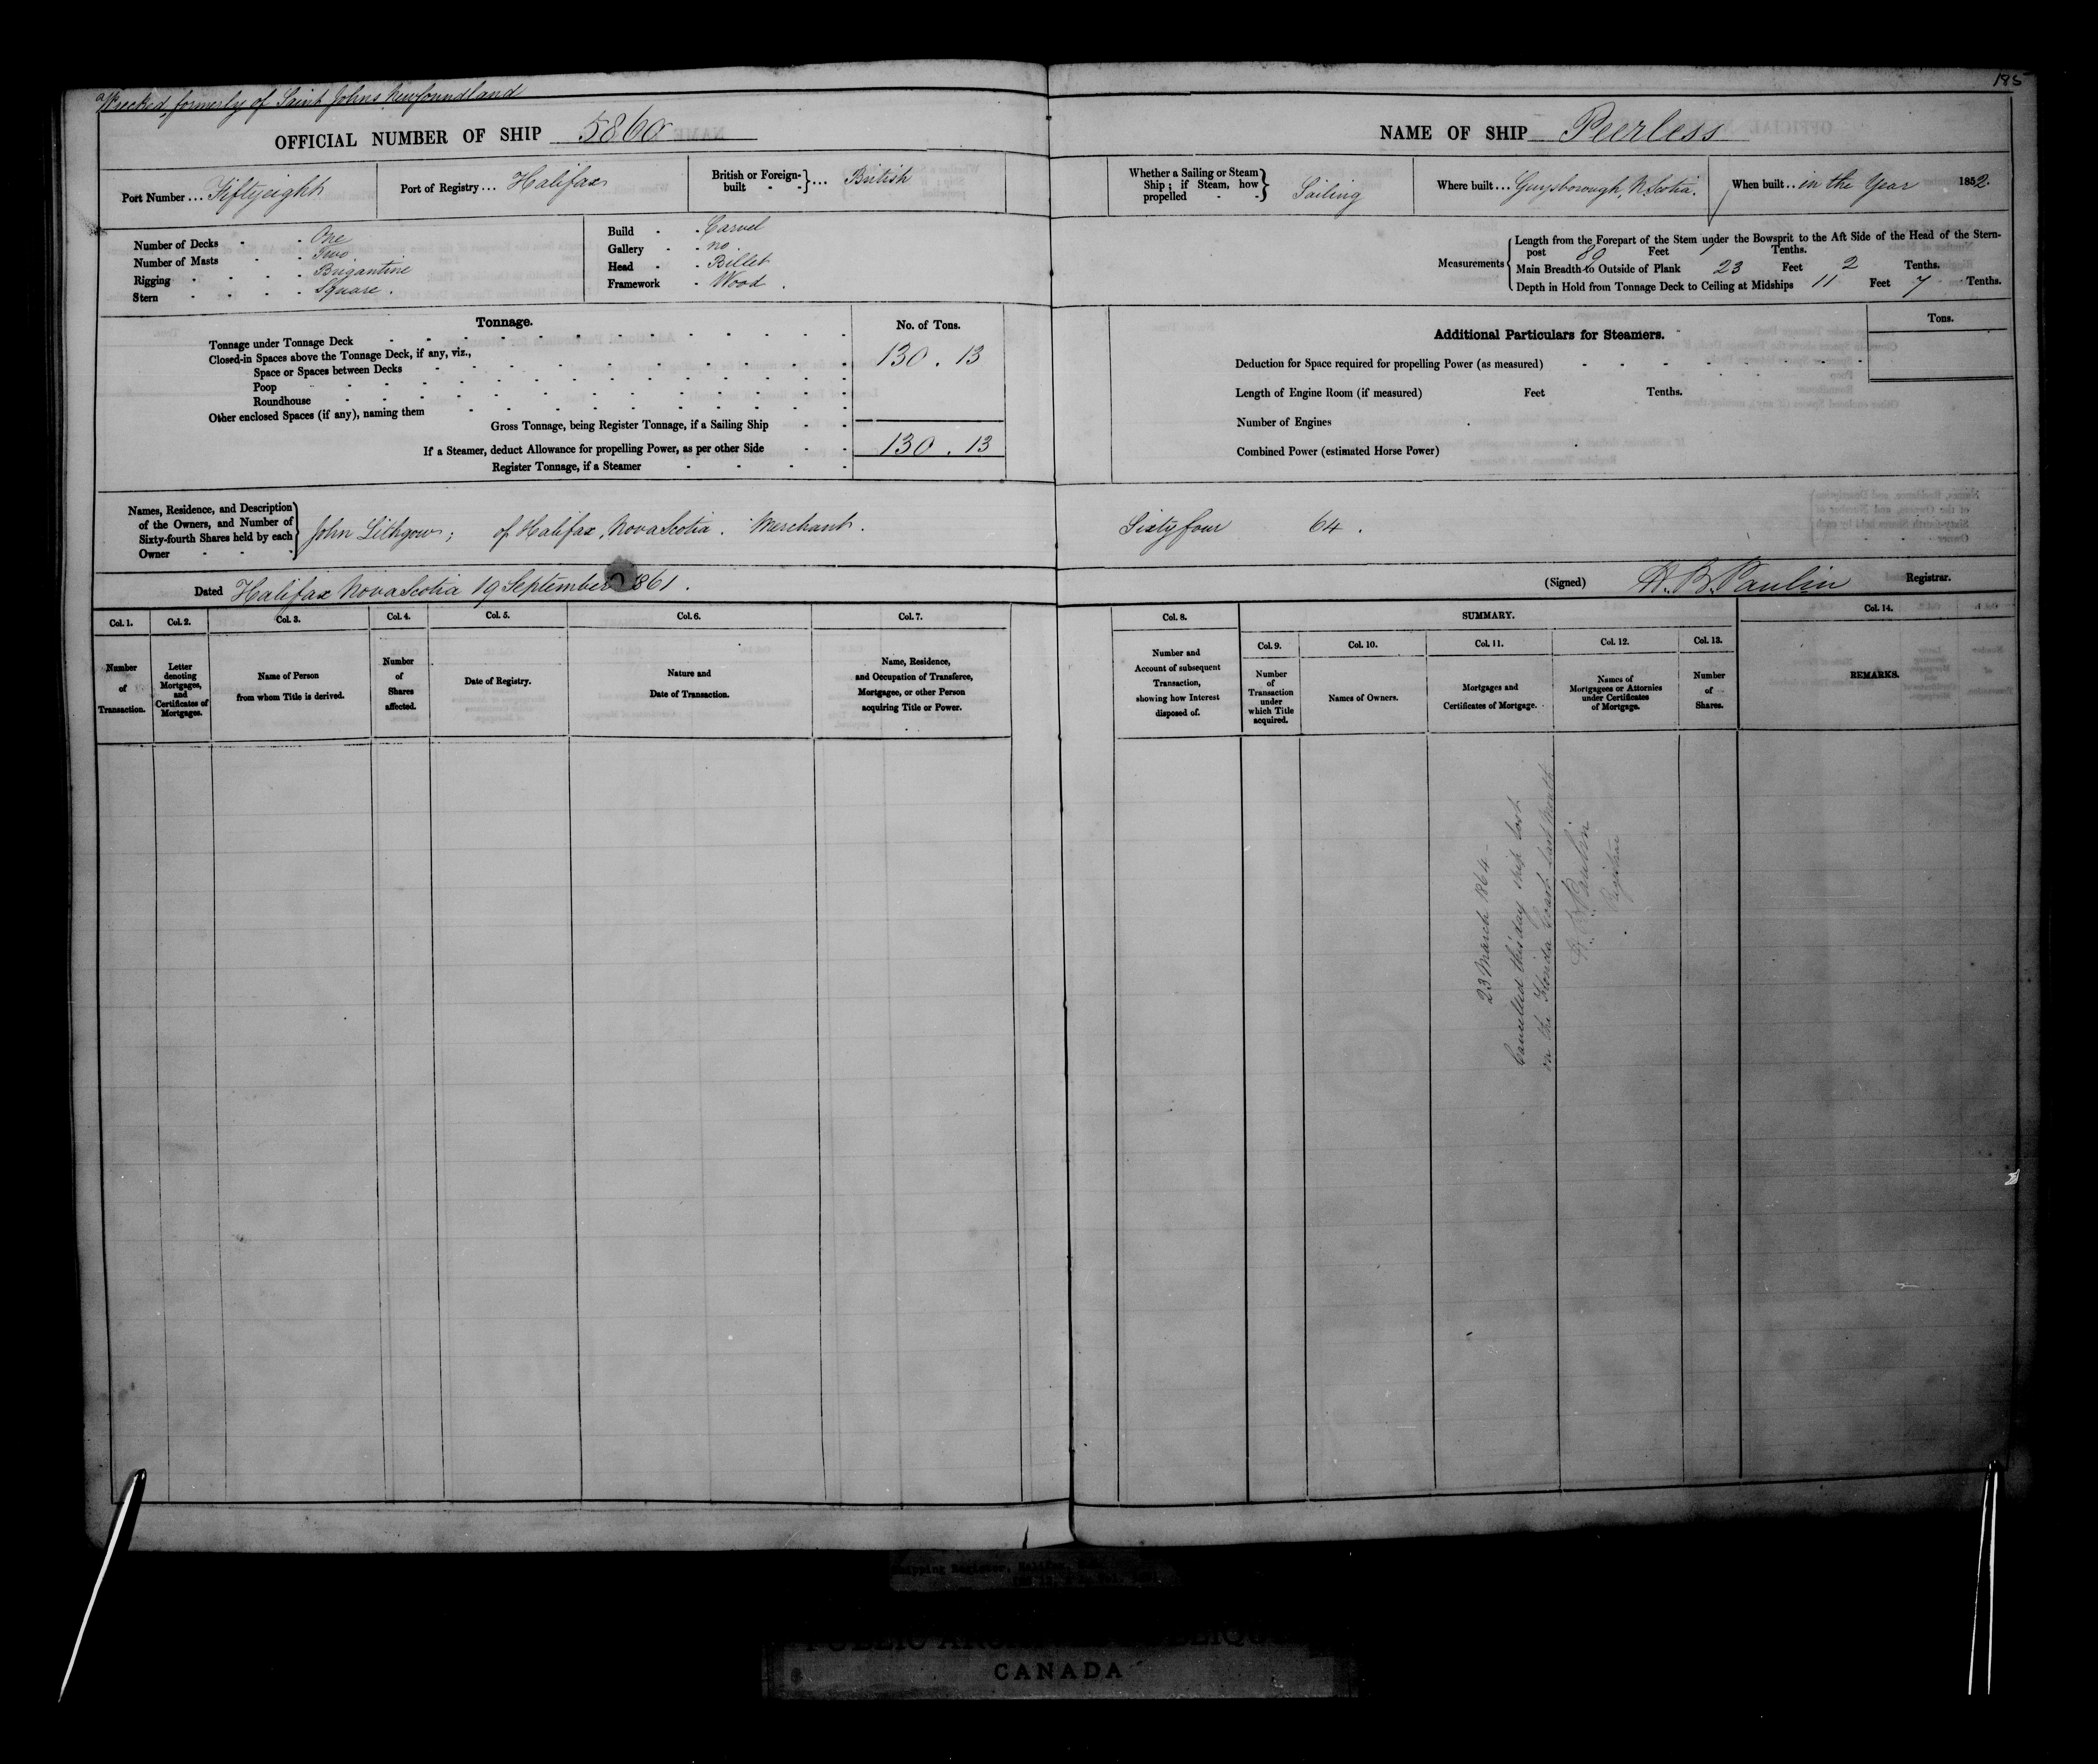 Wrecked, formerly of Saint Johns Newfoundland
185
OFFICIAL NUMBER OF SHIP 5860
NAME OF SHIP Peerless
Port Number ... Fiftyeight
Port of Registry ... Halifax
British or Foreign-built } ... British
Whether a Sailing or Steam Ship; if Steam, how propelled } Sailing
Where built ... Guysborough, N. Scotia.
When built .. in the Year 1852.
Number of Decks - - One
Number of Masts - - Two
Rigging - - - - Brigantine
Stern - - - - Square.
Build - - Carvel
Gallery - - no
Head - - Billet
Framework - Wood.
Measurements
Length from the Forepart of the Stem under the Bowsprit to the Aft Side of the Head of the Stern-
post 89 Feet 1 Tenths.
Main Breadth to Outside of Plank 23 Feet 2 Tenths.
Depth in Hold from Tonnage Deck to Ceiling at Midships 11 Feet 7 Tenths.
Tonnage.
No. of Tons.
Tonnage under Tonnage Deck
130 . 13
Closed-in Spaces above the Tonnage Deck, if any, viz.,
Space or Spaces between Decks
Poop
Roundhouse
Other enclosed Spaces (if any), naming them
Gross Tonnage, being Register Tonnage, if a Sailing Ship
130 . 13
If a Steamer, deduct Allowance for propelling Power, as per other Side
Register Tonnage, if a Steamer
Additional Particulars for Steamers.
Tons.
Deduction for Space required for propelling Power (as measured)
Length of Engine Room (if measured) Feet Tenths.
Number of Engines
Combined Power (estimated Horse Power)
Names, Residence, and Description
of the Owners, and Number of
Sixty-fourth Shares held by each
Owner
John Lithgow; of Halifax, Nova Scotia. Merchant.
Sixty four 64.
Dated Halifax Nova Scotia 19 September 1861.
(Signed) H. B. Paulin Registrar.
Col. 1.
Number
of
Transaction.
Col. 2.
Letter
denoting
Mortgages,
and
Certificates of
Mortgages.
Col. 3.
Name of Person
from whom Title is derived.
Col. 4.
Number
of
Shares
affected.
Col. 5.
Date of Registry.
Col. 6.
Nature and
Date of Transaction.
Col. 7.
Name, Residence,
and Occupation of Transferee,
Mortgagee, or other Person
acquiring Title or Power.
Col. 8.
Number and
Account of subsequent
Transaction,
showing how Interest
disposed of.
SUMMARY.
Col. 9.
Number
of
Transaction
under
which Title
acquired.
Col. 10.
Names of Owners.
Col. 11.
Mortgages and
Certificates of Mortgage.
Col. 12.
Names of
Mortgagees or Attornies
under Certificates
of Mortgage.
Col. 13.
Number
of
Shares.
Col. 14.
REMARKS.
23 March 1864 -
Cancelled this day ship lost
on the Florida Coast last Month
H. B. Paulin
Registrar
Shipping Register, Halifax,
CANADA